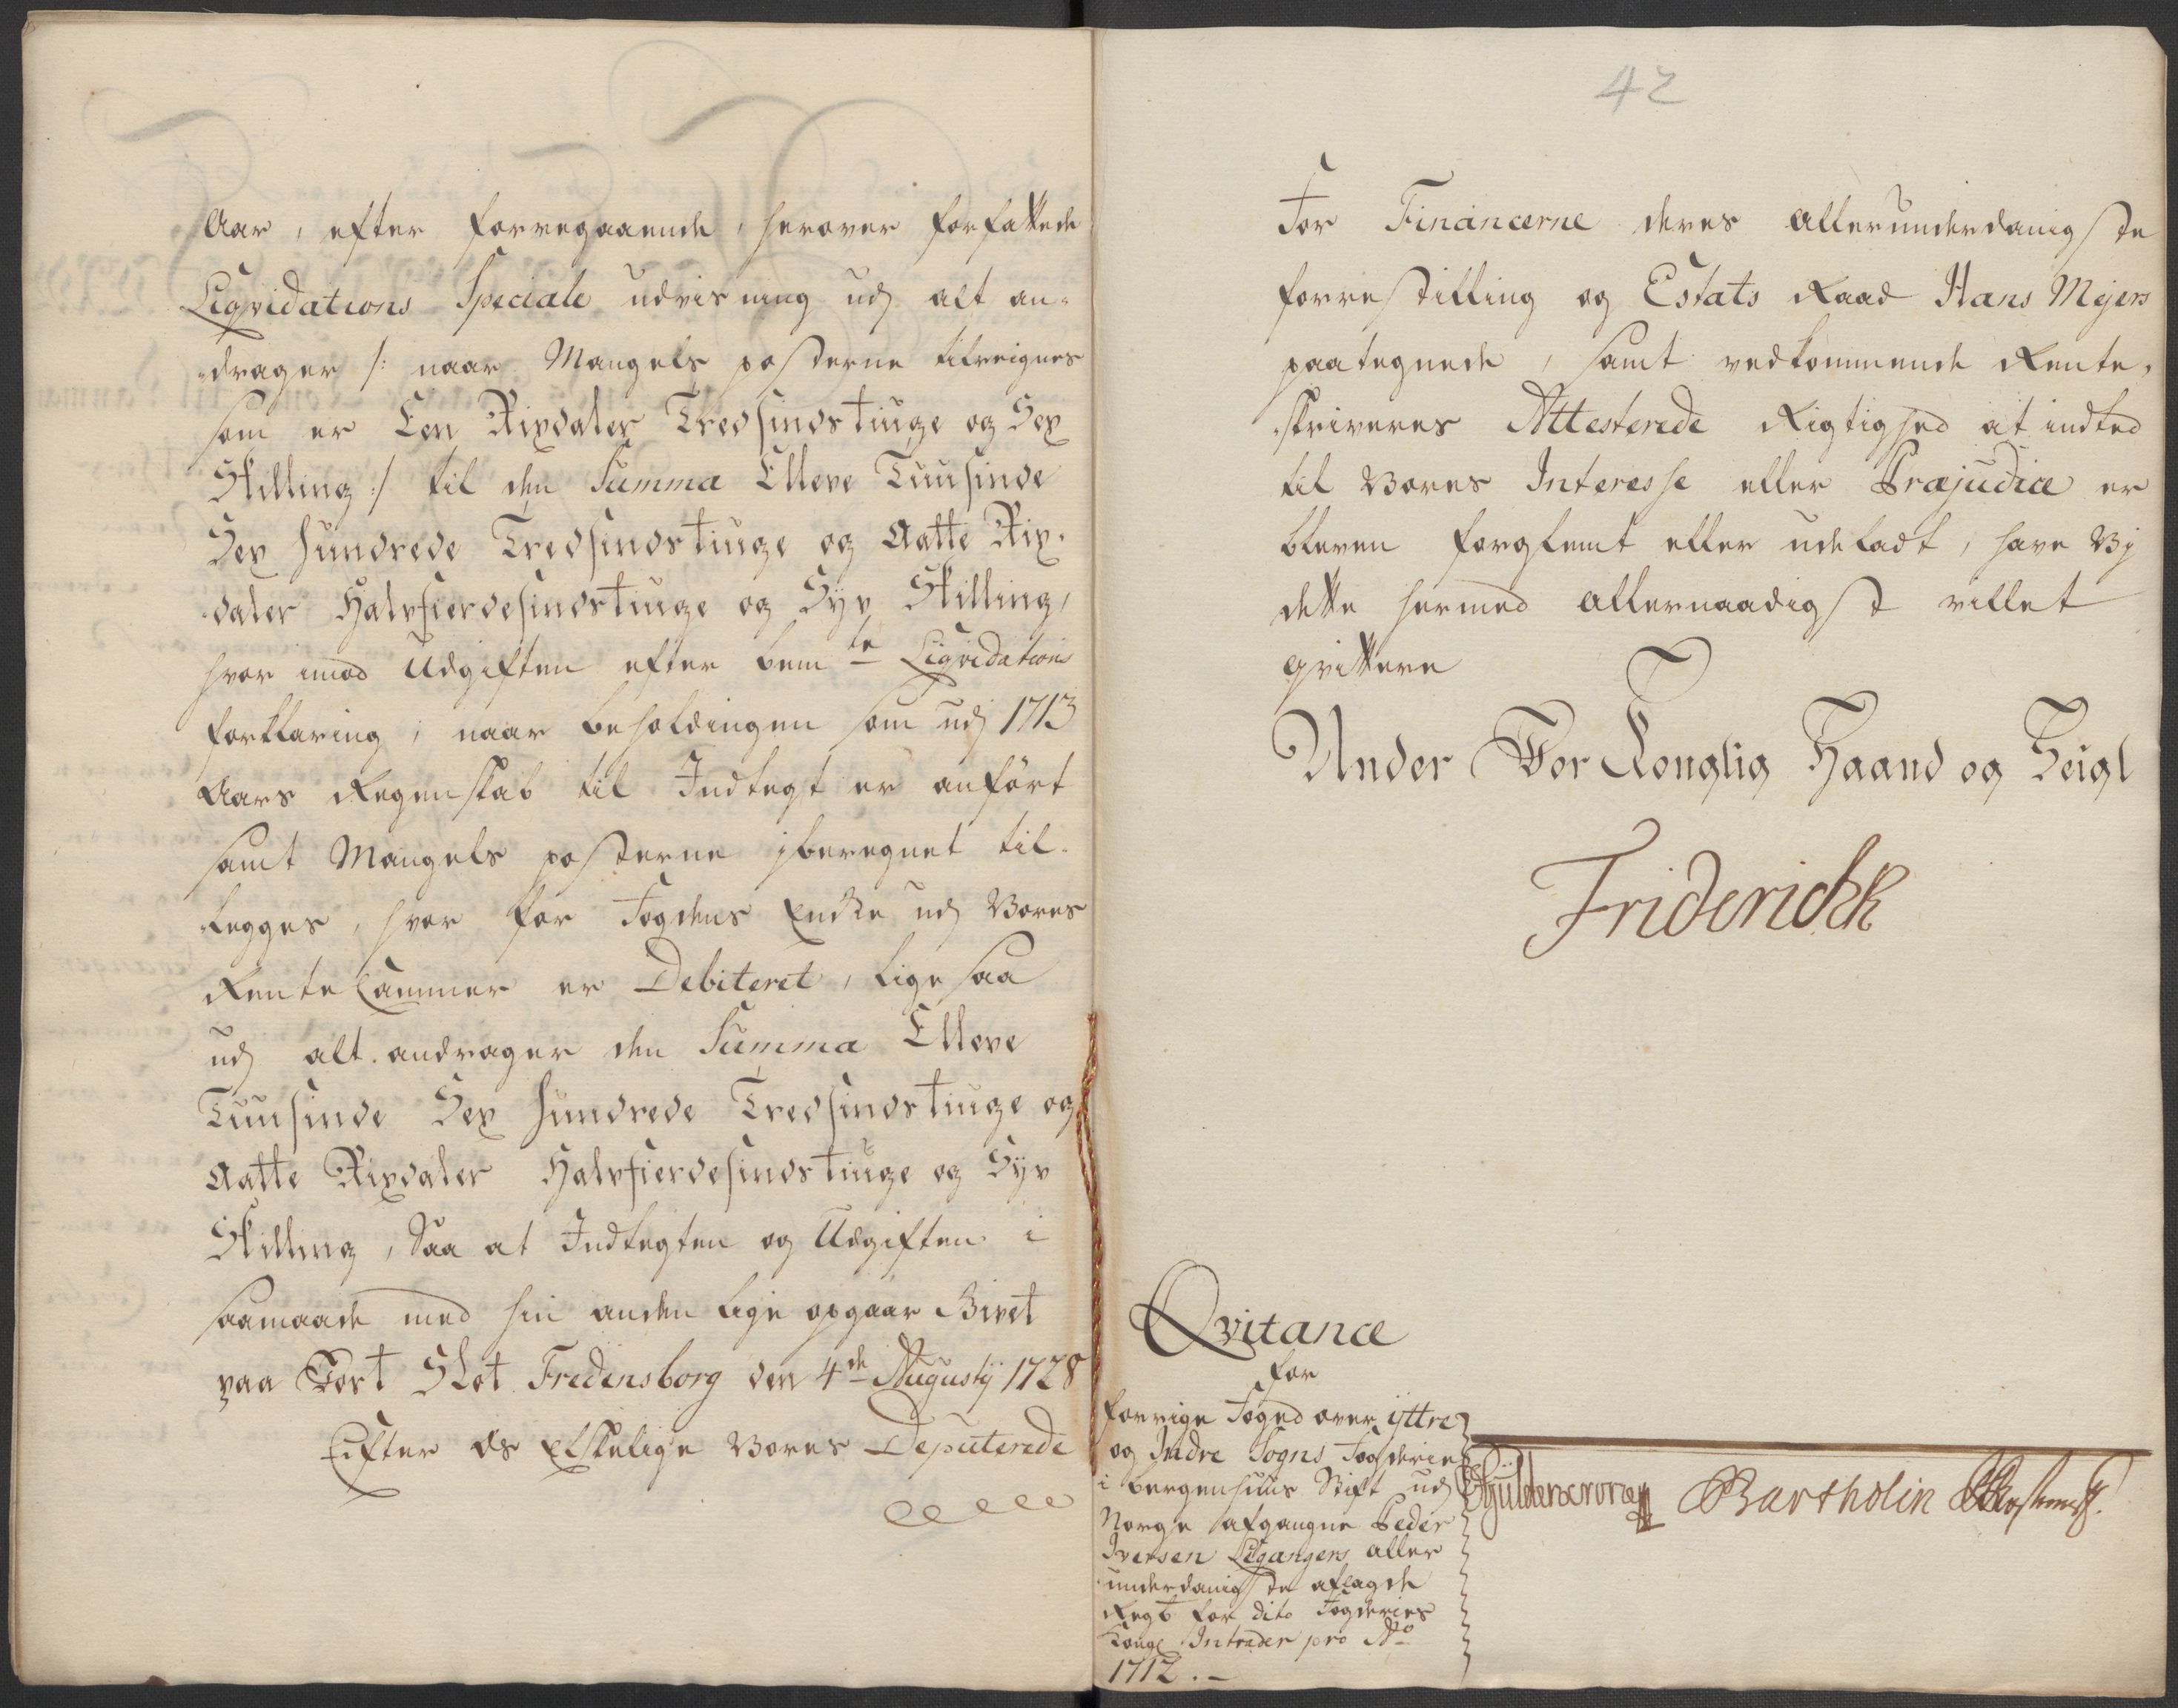 Aar, efter forregaaende, herover forfattede
Liqvidations Speciale udvisning udj alt an-
drager /: naar Mangels posterne tilreignes
som er Een Rixdaler Tredsindstiuge og Sex
Skilling :/ til den Summa Elleve Tuusinde
Sex Hundrede Tredsindstiuge og Aatte Rix-
daler Halvfierdesindstiuge og Syv Skilling,
hvor imod Udgiften efter bem.te Liqvidations
forklaring, naar beholdingen som udj 1713
Aars Regenskab til Indtegt er anført
samt Mangels posterne jberegnet til-
legges, hvor for Fogdens Encke udj Vores
RenteCammer er Debiteret, lige saa
udj alt andrager den Summa Elleve
Tuusinde Sex Hundrede Tredsindstiuge og
Aatte Rixdaler Halvfierdesindstiuge og Syv
Skilling, Saa at Indtegten og Udgiften i
saamaade med hin anden lige opgaar Givet
paa Vort Slot Fredensborg den 4de Augustij 1728
Efter Os Elskelige Vores Deputerede
42
For Financerne deres allerunderdanigste
forrestilling og Estats Raad Hans Mejers
paategnede, samt vedkommende Rente-
skriveres Attesterede Rigtighed at indted
til Vores Interesse eller Præjudice er
bleven forglemt eller udeladt, have Vj
dette hermed allernaadigst villet
qvittere
Under Vor Konglig Haand og Seigl
Friderich R
Qvitance
for
forrige Foged over ÿttre
og Indre Sogns Fogderier
i Bergenhuus Stift udj
Norge afgangne Peder
Iversen Ligangers aller
underdanigste aflagde
Regb for dito Fogderies
Kongl Intrader pro Ao
1712.-
CGüldencrone Bartholin